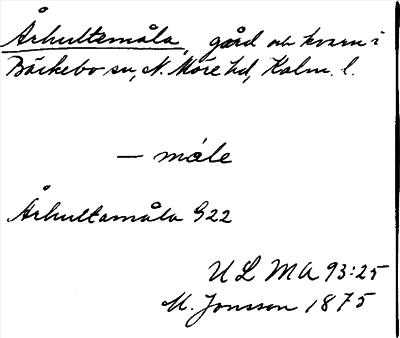 Århultsmåla, gård och kvarn i
Bäckebo sn, N. Möre hd, Kalm. l.
— måle
Århultamåla G22
ULMA 93:25
M. Jonsson 1875